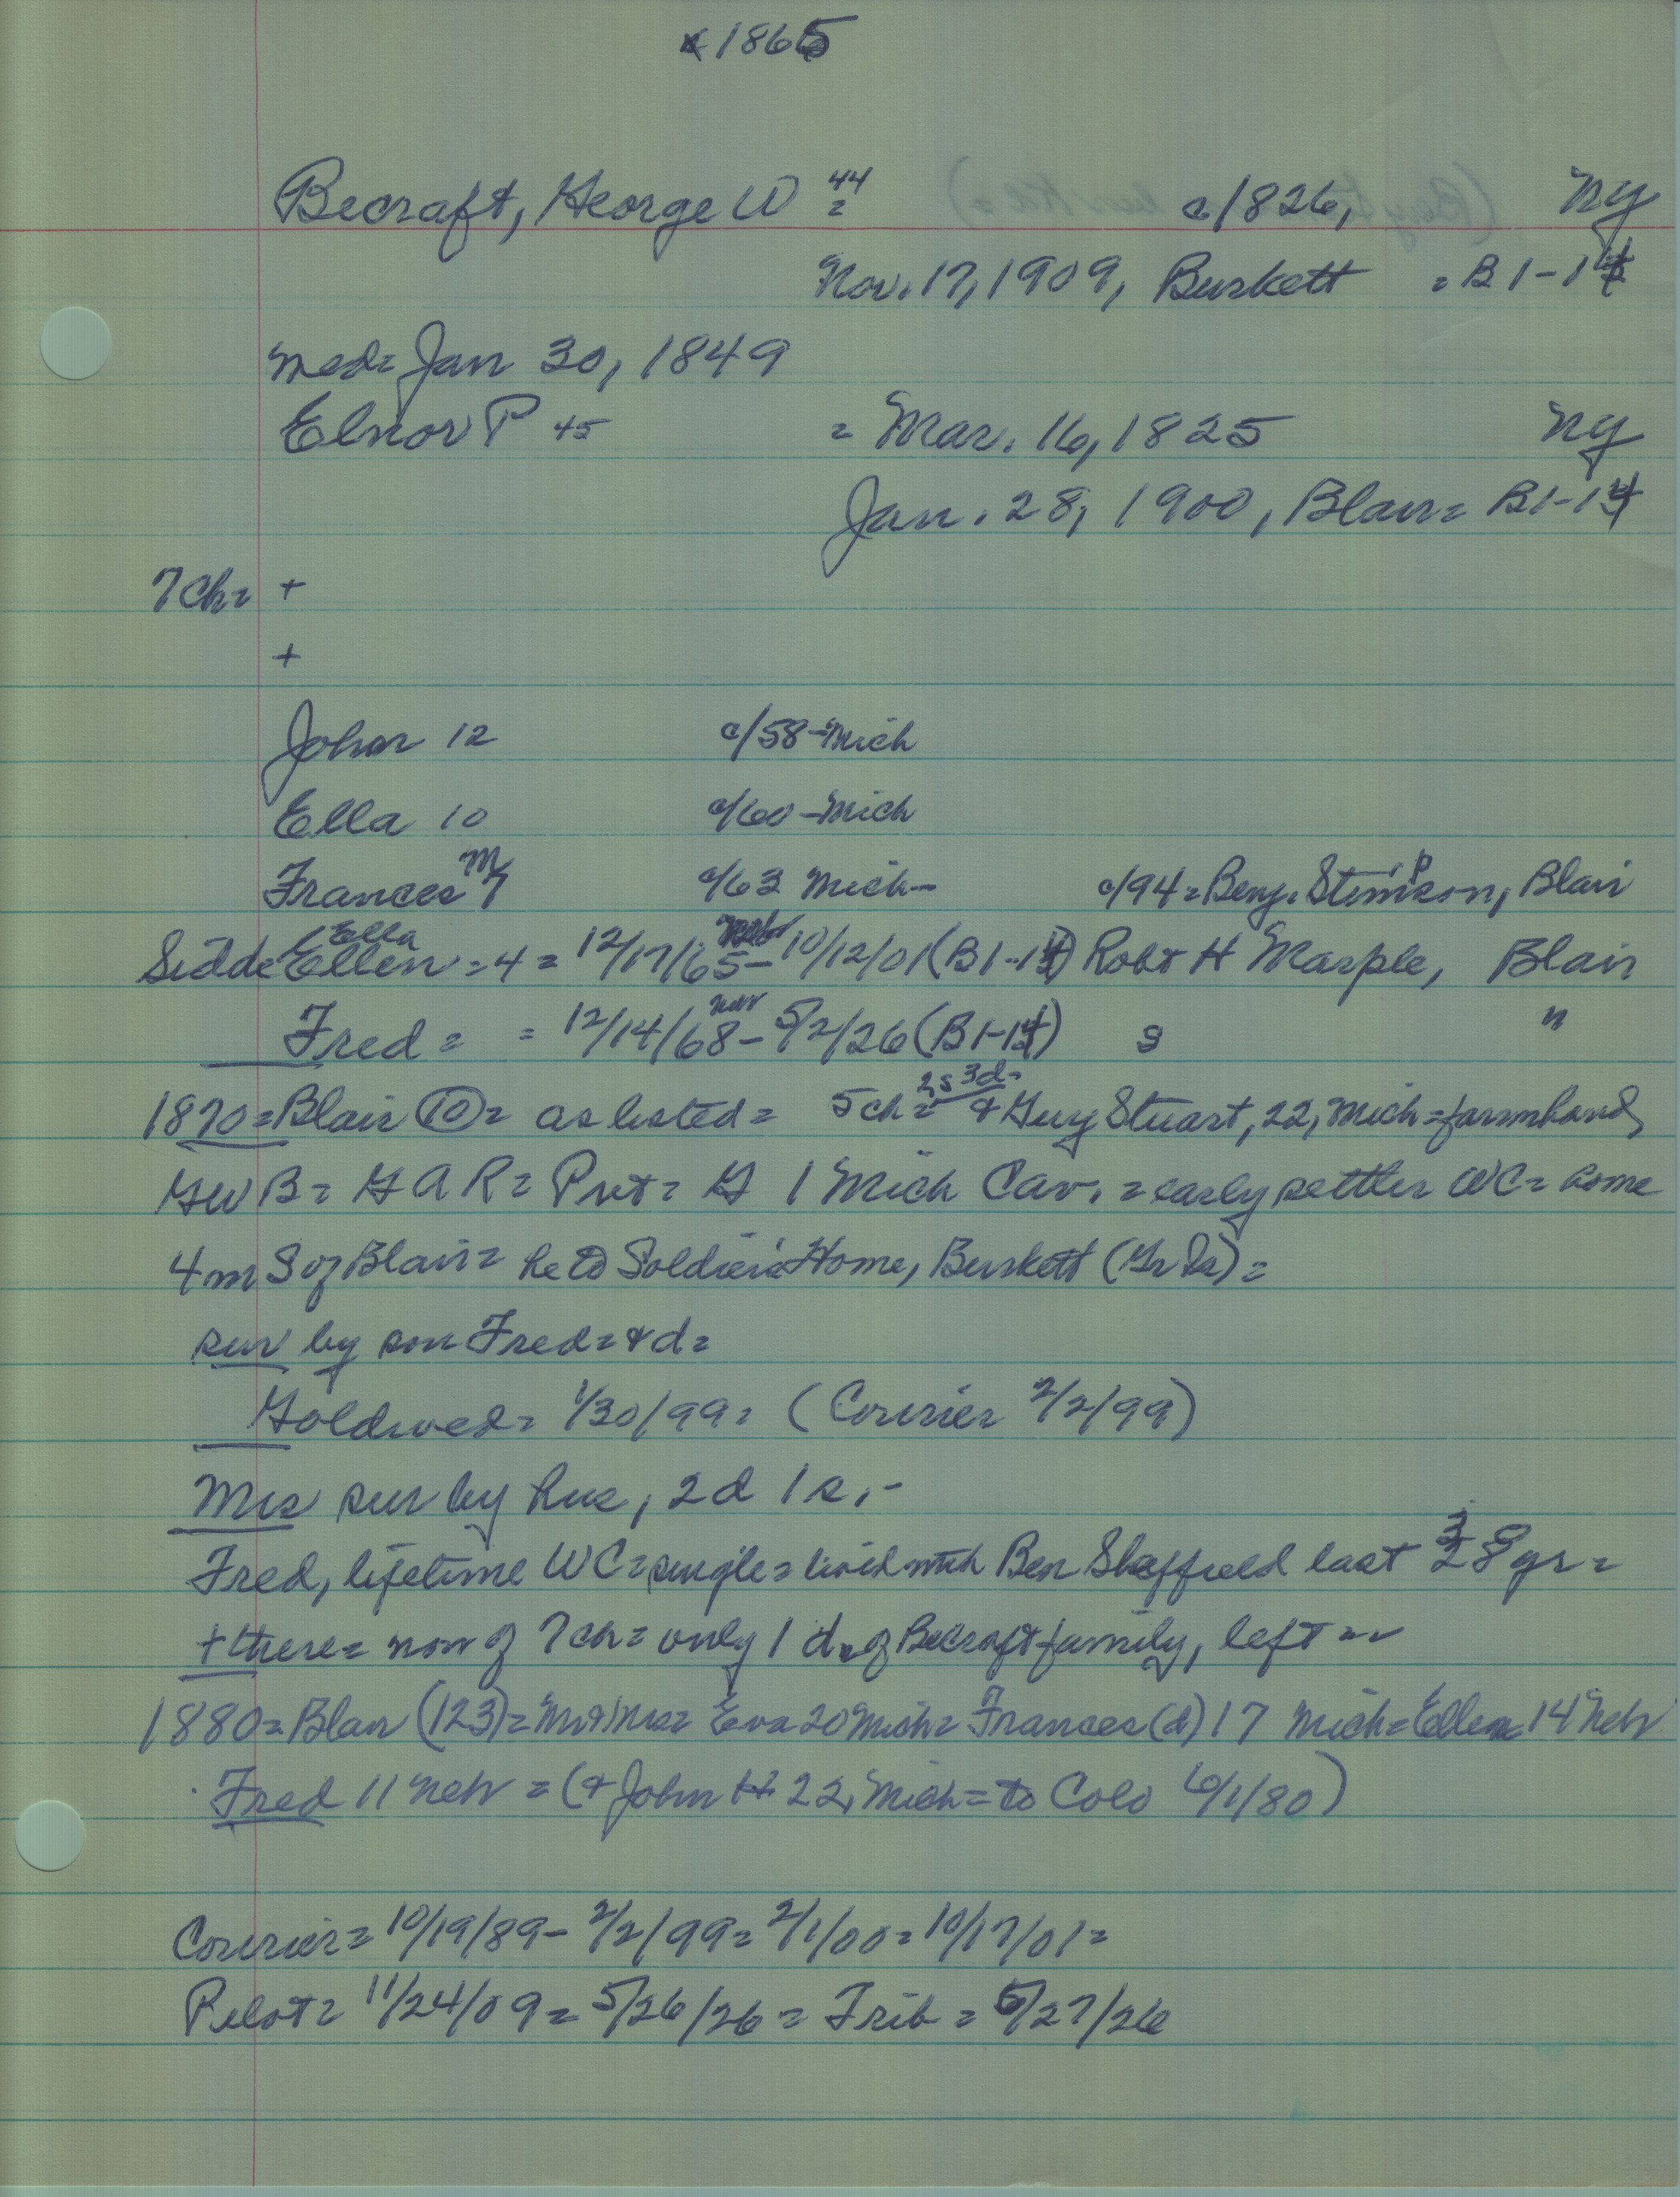 c1865
Becraft, George W 44 = c/1826, NY
Nov. 17, 1909, Burkett = B 1-14
med= Jan 30, 1849
Elnor P 45 = Mar. 16, 1825 NY
Jan. 28, 1900, Blair= B1-14
7 ch= +
+
John 12 c/58-Mich
Ella 10 c/60-Mich
Frances M 7 c/63 Mich- c/94=Benj. Stimpson, Blair
Ella Neb
Ellen = 4 = 12/17/65- 10/12/01(B1-14) Robt H Marple, Blair
Neb
Fred = = 12/14/68- 5/2/26(B1-14) S "
2s 3d=
1870=Blair (10)= as listed= 5ch= & Guy Stuart, 22, Mich=farmhand,
GWB= GAR= Pvt= G 1 Mich Cav. = early settler WC= home
4m S of Blair= he to Soldier's Home, Burkett (Gr Is) =
sur by son Fred= & d=
Goldwed= 1/30/99= (Courier 2/2/99)
Mrs sur by hus, 2d 1s,-
Fred, lifetime WC=single= lived with Ben Sheffield last 38 yr=
+there= non of 7ch= only 1 d. of Becraft family, left =
1880=Blair (123)=Mr&Mrs= Eva 20 Mich= Frances(d) 17 Mich=Ellen 14 Neb
Fred 11 Neb = (& John H 22, Mich= to Colo 6/1/80)
Courier= 10/19/89- 2/2/99= 2/1/00= 10/17/01=
Pilot= 11/24/09= 5/26/26= Trib = 5/27/26